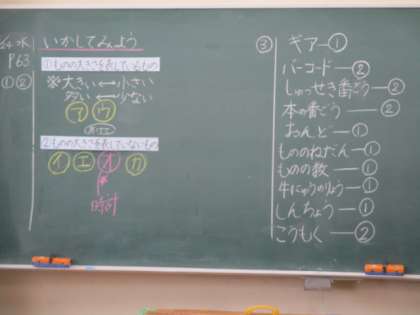 2/4 水
P63
① ②
いかしてみよう
①ものの大きさを表しているもの
※大きい⟷小さい
多い⟷少ない
ア ウ
②ものの大きさを表していないもの
イ エ オ カ
時計
③ ギアー①
バーコード―②
しゅっせき番ごう―②
本の番ごう―②
おんど―①
もののねだん―①
ものの数―①
牛にゅうのりょう―①
しんちょう―①
こうもく―②